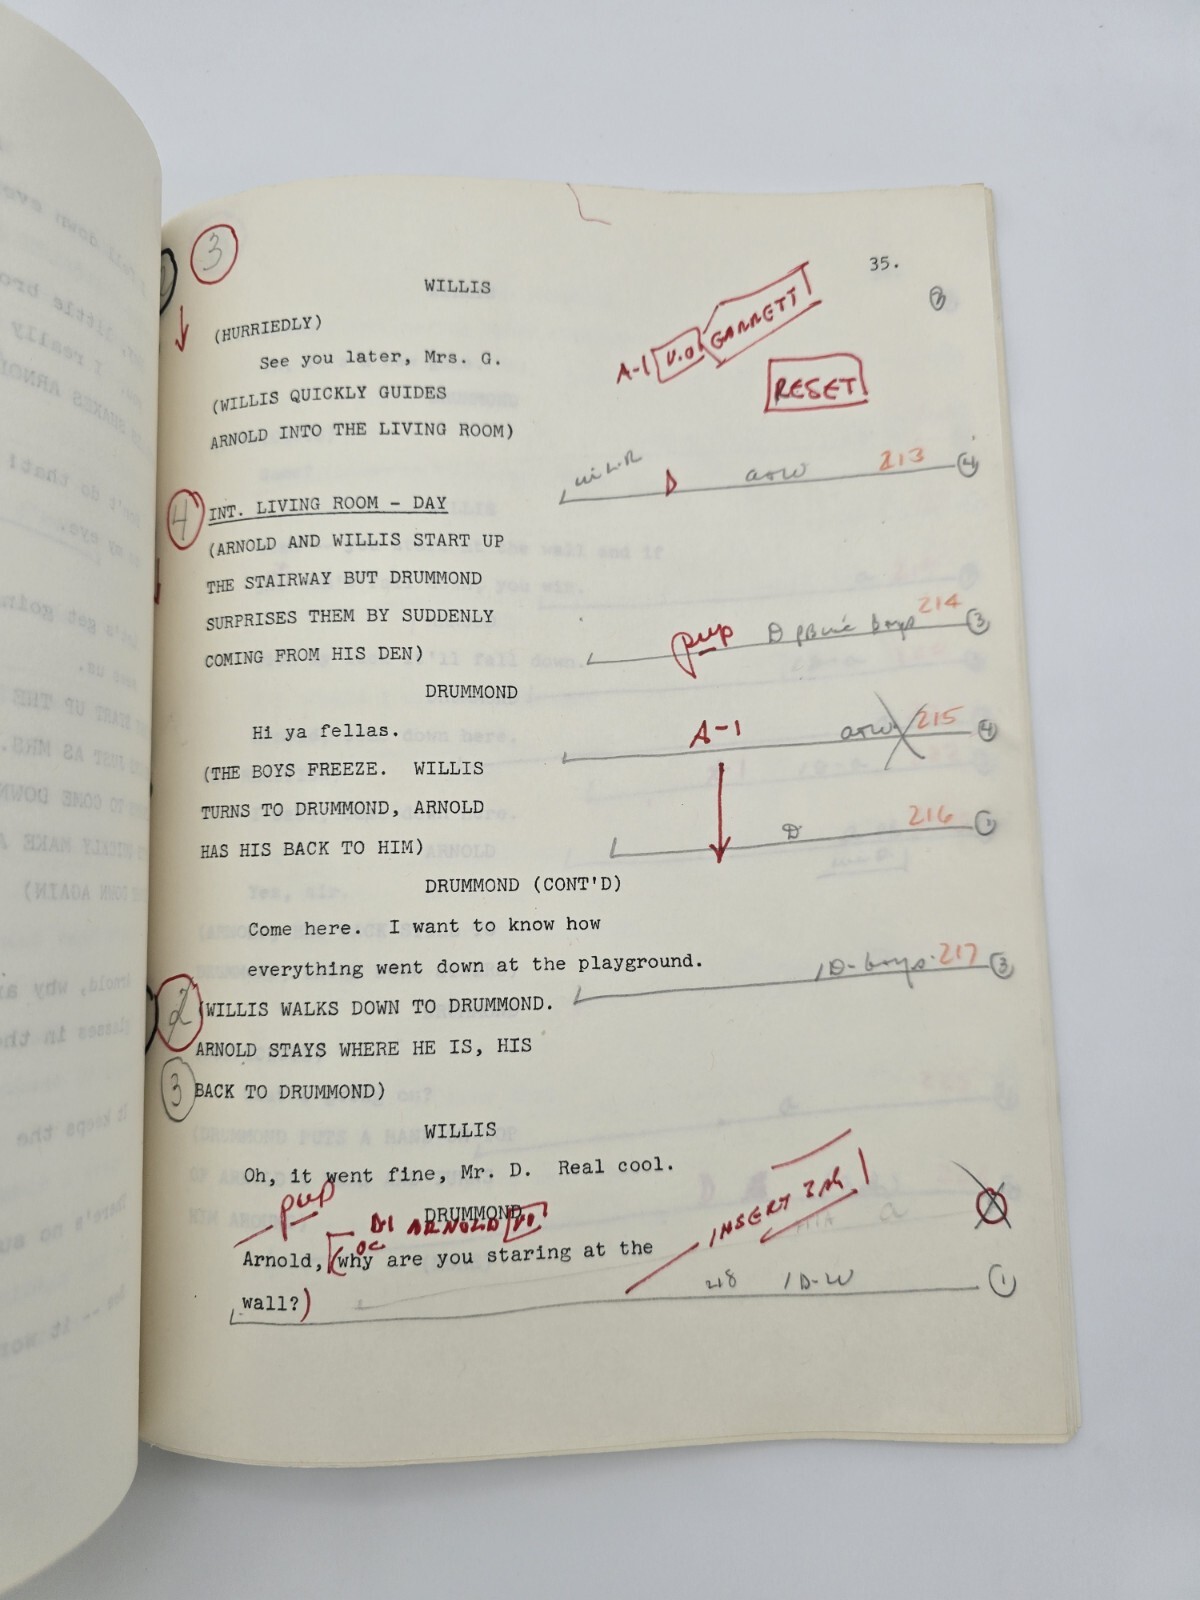 3
35.
WILLIS
3
(HURRIEDLY)
A-1 V.O GARRETT
See you later, Mrs. G.
RESET
(WILLIS QUICKLY GUIDES
ARNOLD INTO THE LIVING ROOM)
D a+w 213 4
4
INT. LIVING ROOM - DAY
(ARNOLD AND WILLIS START UP
THE STAIRWAY BUT DRUMMOND
SURPRISES THEM BY SUDDENLY
pup D boys 214 3
COMING FROM HIS DEN)
DRUMMOND
Hi ya fellas.
A-1 a+w 215 4
(THE BOYS FREEZE. WILLIS
TURNS TO DRUMMOND, ARNOLD
D 216
HAS HIS BACK TO HIM)
DRUMMOND (CONT'D)
Come here. I want to know how
everything went down at the playground.
D-boys 217 3
2
(WILLIS WALKS DOWN TO DRUMMOND.
ARNOLD STAYS WHERE HE IS, HIS
3
BACK TO DRUMMOND)
WILLIS
Oh, it went fine, Mr. D. Real cool.
pup
DRUMMOND
ARNOLD
OC
INSERT
Arnold, (why are you staring at the
218 D-W 1
wall?)